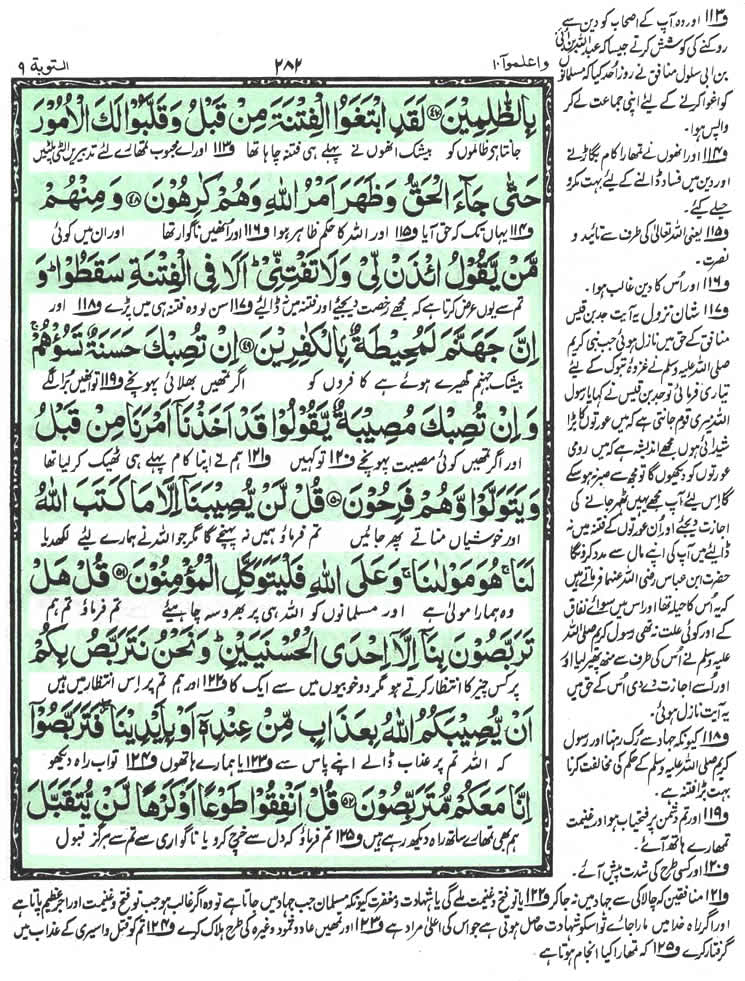 واعلموآ ١٠
٢٨٢
التوبة ٩
بِالظّٰلِمِیْنَ ﴿۴۷﴾ لَقَدِ ابْتَغَوُا الْفِتْنَةَ مِنْ قَبْلُ وَ قَلَّبُوْا لَكَ الْاُمُوْرَ
جانتا ہی ظالموں کو بیشک انھوں نے پہلے ہی فتنہ چاہا تھا ف۱۱۳ اور اے محبوب تمھارے لئے تدبیریں الٹی پلٹیں
حَتّٰی جَآءَ الْحَقُّ وَ ظَهَرَ اَمْرُ اللّٰهِ وَ هُمْ كٰرِهُوْنَ ﴿۴۸﴾ وَ مِنْهُمْ
ف۱۱۴ یہاں تک کہ حق آیا ف۱۱۵ اور اللہ کا حکم ظاہر ہوا ف۱۱۶ اور انھیں ناگوار تھا اور ان میں کوئی
مَّنْ یَّقُوْلُ ائْذَنْ لِّیْ وَ لَا تَفْتِنِّیْ ؕ اَلَا فِی الْفِتْنَةِ سَقَطُوْا ؕ وَ
تم سے یوں عرض کرتا ہے کہ مجھے رخصت دیجئے اور فتنہ میں نہ ڈالئے ف۱۱۷ سن لو وہ فتنہ ہی میں پڑے ف۱۱۸ اور
اِنَّ جَهَنَّمَ لَمُحِیْطَةٌۢ بِالْكٰفِرِیْنَ ﴿۴۹﴾ اِنْ تُصِبْكَ حَسَنَةٌ تَسُؤْهُمْ ۚ
بیشک جہنم گھیرے ہوئے ہے کافروں کو اگر تمھیں بھلائی پہونچے ف۱۱۹ تو انھیں برا لگے
وَ اِنْ تُصِبْكَ مُصِیْبَةٌ یَّقُوْلُوْا قَدْ اَخَذْنَاۤ اَمْرَنَا مِنْ قَبْلُ
اور اگر تمھیں کوئی مصیبت پہونچے ف۱۲۰ تو کہیں ف۱۲۱ ہم نے اپنا کام پہلے ہی ٹھیک کر لیا تھا
وَ یَتَوَلَّوْا وَّ هُمْ فَرِحُوْنَ ﴿۵۰﴾ قُلْ لَّنْ یُّصِیْبَنَاۤ اِلَّا مَا كَتَبَ اللّٰهُ
اور خوشیاں مناتے پھر جائیں تم فرماؤ ہمیں نہ پہنچے گا مگر جو اللہ نے ہمارے لئے لکھدیا
لَنَا ۚ هُوَ مَوْلٰىنَا ۚ وَ عَلَی اللّٰهِ فَلْیَتَوَكَّلِ الْمُؤْمِنُوْنَ ﴿۵۱﴾ قُلْ هَلْ
وہ ہمارا مولیٰ ہے اور مسلمانوں کو اللہ ہی پر بھروسہ چاہیئے تم فرماؤ تم ہم
تَرَبَّصُوْنَ بِنَاۤ اِلَّاۤ اِحْدَی الْحُسْنَیَیْنِ ؕ وَ نَحْنُ نَتَرَبَّصُ بِكُمْ
پر کس چیز کا انتظار کرتے ہو مگر دو خوبیوں میں سے ایک کا ف۱۲۲ اور ہم تم پر اس انتظار میں ہیں
اَنْ یُّصِیْبَكُمُ اللّٰهُ بِعَذَابٍ مِّنْ عِنْدِهٖۤ اَوْ بِاَیْدِیْنَا ۖؗ فَتَرَبَّصُوْۤا
کہ اللہ تم پر عذاب ڈالے اپنے پاس سے ف۱۲۳ یا ہمارے ہاتھوں ف۱۲۴ تو اب راہ دیکھو
اِنَّا مَعَكُمْ مُّتَرَبِّصُوْنَ ﴿۵۲﴾ قُلْ اَنْفِقُوْا طَوْعًا اَوْ كَرْهًا لَّنْ یُّتَقَبَّلَ
ہم بھی تمھارے ساتھ راہ دیکھ رہے ہیں ف۱۲۵ تم فرماؤ کہ دل سے خرچ کرو یا ناگواری سے تم سے ہرگز قبول
ف۱۱۳ اور وہ آپ کے اصحاب کو دین سے
روکنے کی کوشش کرتے جیسا کہ عبداللہ بن ابی
بن ابی سلول منافق نے روز احد کیا کہ مسلمانوں
کو اغوا کرنے کے لیئے اپنی جماعت لے کر
واپس ہوا۔
ف۱۱۴ اور انھوں نے تمھارا کام بگاڑنے
اور دین میں فساد ڈالنے کے لیئے بہت مکر و
حیلے کیئے۔
ف۱۱۵ یعنی اللہ تعالیٰ کی طرف سے تائید و
نصرت۔
ف۱۱۶ اور اُس کا دین غالب ہوا۔
ف۱۱۷ شان نزول یہ آیت جد بن قیس
منافق کے حق میں نازل ہوئی جب نبی کریم
صلی اللہ علیہ وسلم نے غزوۂ تبوک کے لیئے
تیاری فرمائی تو جد بن قیس نے کہا یا رسول
اللہ میری قوم جانتی ہے کہ میں عورتوں کا بڑا
شیدائی ہوں مجھے اندیشہ ہے کہ میں رومی
عورتوں کو دیکھوں گا تو مجھ سے صبر نہ ہو سکے
گا اس لیئے آپ مجھے یہیں ٹھہر جانے کی
اجازت دیجئے اور ان عورتوں کے فتنہ میں نہ
ڈالئے میں آپ کی اپنے مال سے مدد کرونگا
حضرت ابن عباس رضی اللہ عنہما فرماتے ہیں
کہ یہ اُس کا حیلہ تھا اور اس میں سوائے نفاق
کے اور کوئی علت نہ تھی رسول کریم صلی اللہ
علیہ وسلم نے اُس کی طرف سے منھ پھیر لیا اور
اُسے اجازت دے دی اُس کے حق میں
یہ آیت نازل ہوئی۔
ف۱۱۸ کیونکہ جہاد سے رُک رہنا اور رسول
کریم صلی اللہ علیہ وسلم کے حکم کی مخالفت کرنا
بہت بڑا فتنہ ہے۔
ف۱۱۹ اور تم دشمن پر فتحیاب ہو اور غنیمت
تمھارے ہاتھ آئے۔
ف۱۲۰ اور کسی طرح کی شدت پیش آئے۔
ف۱۲۱ منافقین کہ چالاکی سے جہاد میں نہ جا کر ف۱۲۲ یا تو فتح و غنیمت ملے گی یا شہادت و مغفرت کیونکہ مسلمان جب جہاد میں جاتا ہے تو وہ اگر غالب ہو جب تو فتح و غنیمت اور اجر عظیم پاتا ہے
اور اگر راہ خدا میں مارا جائے تو اسکو شہادت حاصل ہوتی ہے جو اس کی اعلیٰ مراد ہے ف۱۲۳ اور تمھیں عاد و ثمود وغیرہ کی طرح ہلاک کرے ف۱۲۴ تم کو قتل و اسیری کے عذاب میں
گرفتار کرے ف۱۲۵ کہ تمھارا کیا انجام ہوتا ہے۔